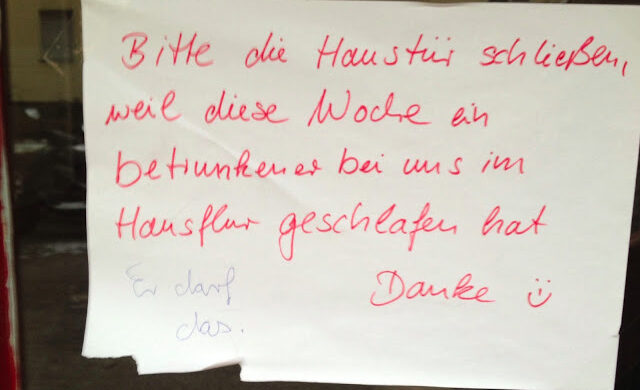 Bitte die Haustür schließen,
weil diese Woche ein
betrunkener bei uns im
Hausflur geschlafen hat
Danke ü
Er darf
das.